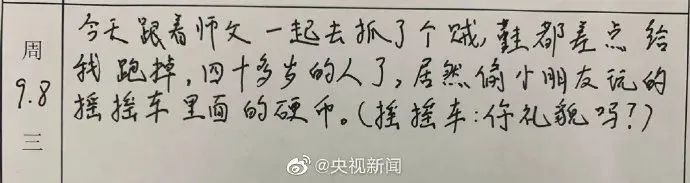 今天跟着师父一起去抓了个贼,鞋都差点给
我跑掉,四十多岁的人了,居然偷小朋友玩的
摇摇车里面的硬币。(摇摇车:你礼貌吗?)
周
9.8
三
@央视新闻